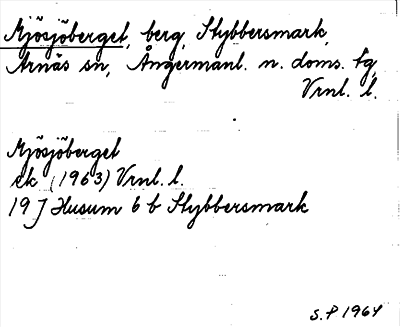 Mjösjöberget, berg, Stybbersmark,
Arnäs sn, Ångermanl. n. doms. tg,
Vrnl. l.
Mjösjöberget
ek (1963) Vrnl. l.
19 J Husum 6 b Stybbersmark
S.P 1964